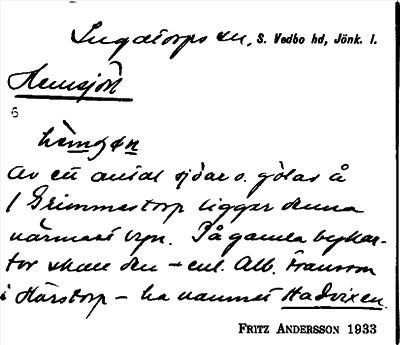 Ingatorps sn, S. Vedbo hd, Jönk. l.
Hemsjön
6
hèmʃǫn
Av ett antal sjöar o. gölar å
/ Grimmestorp ligger denna
närmast byn. På gamla bykar-
tor skall den – enl. Alb. Fransson
i Hårstorp – ha namnet Hadvixen.
FRITZ ANDERSSON 1933